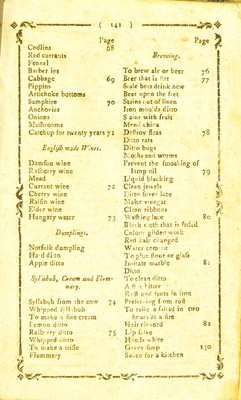 ( 141 )
Page
Codlins 68
Red currants
Fennel
Barber ies
Cabbage 69
Pippins
Artichoke bottoms
Samphire 70
Anchovies
Onions
Mushrooms
Catchup for twenty years 71
English made Wines.
Damson wine
Rasberry wine
Mead
Currant wine 72
Cherry wine
Raisin wine
Elder wine
Hungary water 73
Dumplings.
Norfolk dumpling
Hard ditto
Apple ditto
Syllabub, Cream and Flummery.
Syllabub from the cow 74
Whipped syllabub
To make a fine cream
Lemon ditto
Rasberry ditto 75
Whipped ditto
To make a trifle
Flummery
Page
Brewing.
To brew ale or beer 76
Beer that is flat 77
Stale beer drink new
Beer upon the fret
Stains out of linen
Iron moulds ditto
Stains with fruit
Mend china
Destroy fleas 78
Ditto rats
Ditto bugs
Moths and worms
Prevent the smoaking of
lamp oil 79
Liquid blacking
Clean jewels
Ditto silver lace
Make vinegar
Clean ribbons
Washing lace 80
Black cloth that is faded
Colour gilded work
Red hair changed
Water cement
To glue stone or glass
Imitate marble 81
Ditto
To clean ditto
Rust and spots in iron
Preserving from rust
heart at a fire
Hair cleaned 82
Lip salve
Hands white
Gravy soup 130
Sauce for a kitchen